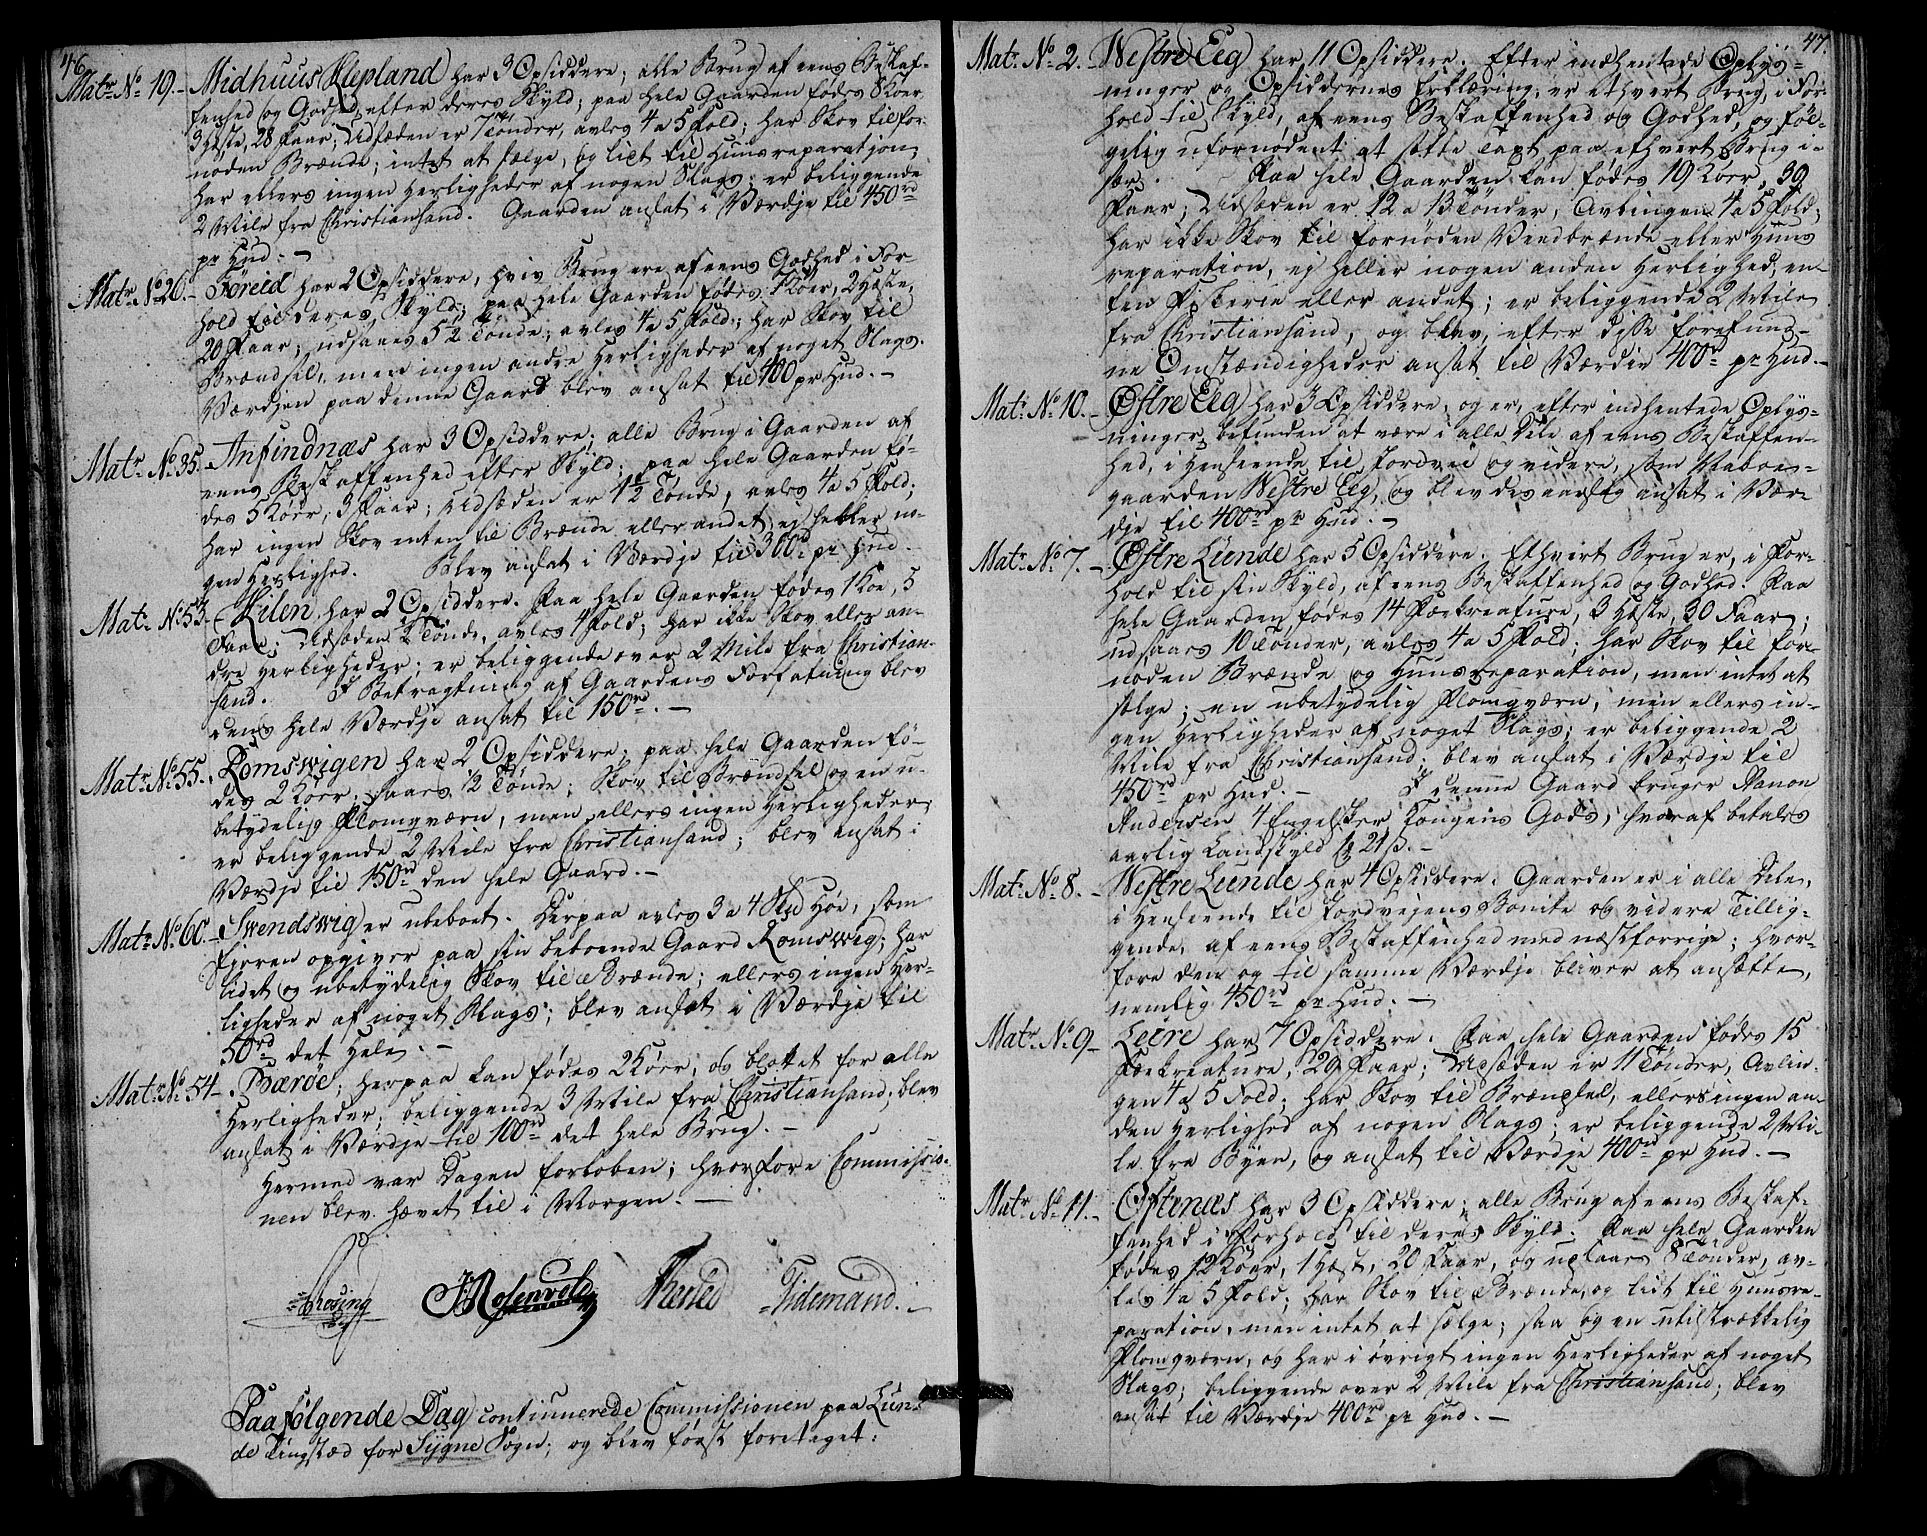 46.
Matr. No 19. – Midhuus Klepland har 3 Opsiddere; alle Brug af eens Beskaf-
fenhed og Godhed efter deres Skyld; paa hele Gaarden fødes 8 Køer,
3 Heste, 28 Faar; Udsæden er 7 Tønder, avles 4 a 5 Fold; har Skov til for-
nøden Brænde, intet at sælge, og lidt til Huusreparation,
har ellers ingen Herligheder af nogen Slags; er beliggende
2 Mile fra Christiansand. Gaarden ansat i Værdje til 450rd
pr Hud. –
Matr. No 20. – Føreid har 2 Opsiddere, hvis Brug ere af eens Godhed i For-
hold til deres Skyld; paa hele Gaarden fødes Køer, 2 Heste,
20 Faar; udsaaes 5 1/2 Tønde; avles 4 a 5 Fold; har Skov til
Brændsel, men ingen andre Herligheder af noget Slags.
Værdjen paa denne Gaard blev ansat til 400 pr Hud. –
Matr. No 35. – Anfindnæs har 3 Opsiddere; alle Brug i Gaarden af
eens Beskaffenhed efter Skyld; paa hele Gaarden fø-
des 5 Køer, 3 Faar; Udsæden er 1 1/2 Tønde, avles 4 a 5 Fold;
har ingen Skov enten til Brænde eller andet, ej heller no-
gen Herlighed. Blev ansat i Værdje til 300rd pr Hud.
Matr. No 53. – Kilen har 2 Opsiddere. Paa hele Gaarden fødes 1 Koe, 5
Faar; Udsæden 1/2 Tønde, avles 4 Fold; har ikke Skov eller an-
dre Herligheder; er beliggende over 2 Mile fra Christian-
sand. I Betragtning af Gaardens Forfatning blev
dens hele Værdje ansat til 150rd. –
Matr. No 55. – Romswigen har 2 Opsiddere; paa hele Gaarden fø-
des 2 Køer, saaes 1/2 Tønde; Skov til Brændsel og en u-
betydelig Flomqværn, men ellers ingen Herligheder;
er beliggende 2 Mile fra Christiansand; blev ansat i
Værdje til 150rd den hele Gaard. –
Matr. No 60. – Swendswig er ubeboet. Herpaa avles 3 a 4 Høe, som
Ejeren opgiver paa sin beboende Gaard Romswig; har
lidet og ubetydelig Skov til Brænde; ellers ingen Her-
ligheder af noget Slags; blev ansat i Værdje til
50rd det Hele. –
Matr. No 54 – Bærøe; herpaa kan fødes 2 Køer, og blottet for alle
Herligheder; beliggende 3 Mile fra Christiansand; blev
ansat i Værdje til 100rd det hele Brug. –
Hermed var Dagen forløben; hvorfore Commissio-
nen blev hævet til i Morgen. –
Rosing JRosenvold Tidemand. –
Paafølgende Dag continuerede Commissionen paa Lun-
de Tingstæd for Sygne Sogn; og blev først foretaget:
47.
Matr. No 2. – Westre Eeg har 11 Opsiddere. Efter indhentede Oplys-
ninger og Opsiddernes Erklæring, er ethvert Brug, i For-
hold til Skyld, af eens Beskaffenhed og Godhed, og føl-
gelig ufornødent at sætte Taxt paa ethvert Brug i-
sær. Paa hele Gaarden kan fødes 19 Køer, 39
Faar; Udsæden er 12 a 13 Tønder, Avlingen 4 a 5 Fold;
har ikke Skov til fornøden Veedbrænde eller Huus
reparation, ej heller nogen anden Herlighed, en-
ten Fiskerie eller andet; er beliggende 2 Mile
fra Christiansand, og blev, efter disse forefund-
ne Omstændigheder ansat til Værdie 400rd pr Hud. –
Matr. No 10. – Østre Eeg har 3 Opsiddere, og er, efter indhentede Oplys-
ninger, befunden at være i alle Dele af eens Beskaffen-
hed, i Henseende til Jordvei og videre, som Naboe-
gaarden Westre Eeg, og blev desaarsag ansat i Vær-
dje til 400rd pr Hud. –
Matr. No 7. – Østre Lunde har 5 Opsiddere. Ethvert Brug er, i For-
hold til sin Skyld, af eens Beskaffenhed og Godhed. Paa
hele Gaarden fødes 14 Fækreature, 3 Heste, 30 Faar;
udsaaes 10 Tønder, avles 4 a 5 Fold; har Skov til for-
nøden Brænde og Huusreparation, men intet at
sælge; en ubetydelig Flomqværn, men ellers in-
gen Herligheder af noget Slags; er beliggende 2
Mile fra Christiansand; blev ansat i Værdje til
450rd pr Hud. – I denne Gaard bruger Aanon
Andersen 4 Engelsker Kongens Gods, hvoraf betales
aarlig Landskyld 21 ß. –
Matr. No 8. – Westre Lunde har 4 Opsiddere. Gaarden er i alle Dele,
i Henseende til Jordvejens Bonite og videre Tillig-
gende, af eens Beskaffenhed med næstforrige; hvor-
fore den og til samme Værdje bliver at ansætte,
nemlig 450rd pr Hud. –
Matr. No 9 – Leire har 7 Opsiddere. Paa hele Gaarden fødes 15
Fækreature, 29 Faar; Udsæden er 11 Tønder, Avlin-
gen 4 a 5 Fold; har Skov til Brændsel, ellers ingen an-
den Herlighed af nogen Slags; er beliggende 2 Mi-
le fra Byen, og ansat til Værdje 400rd pr Hud. –
Matr. No 11. – Oftenæs har 3 Opsiddere; alle Brug af eens Beskaf-
fenhed i Forhold til deres Skyld. Paa hele Gaarden
fødes 12 Køer, 1 Hest, 20 Faar, og udsaaes 8 Tønder, av-
les 4 a 5 Fold; har Skov til Brænde, og lidt til Huusre-
paration, men intet at sælge; saa og en utilstrækkelig
Flomqværn, og har i øvrigt ingen Herligheder af noget
Slags; beliggende over 2 Mile fra Christiansand; blev
ansat til Værdje 400rd pr Hud. –